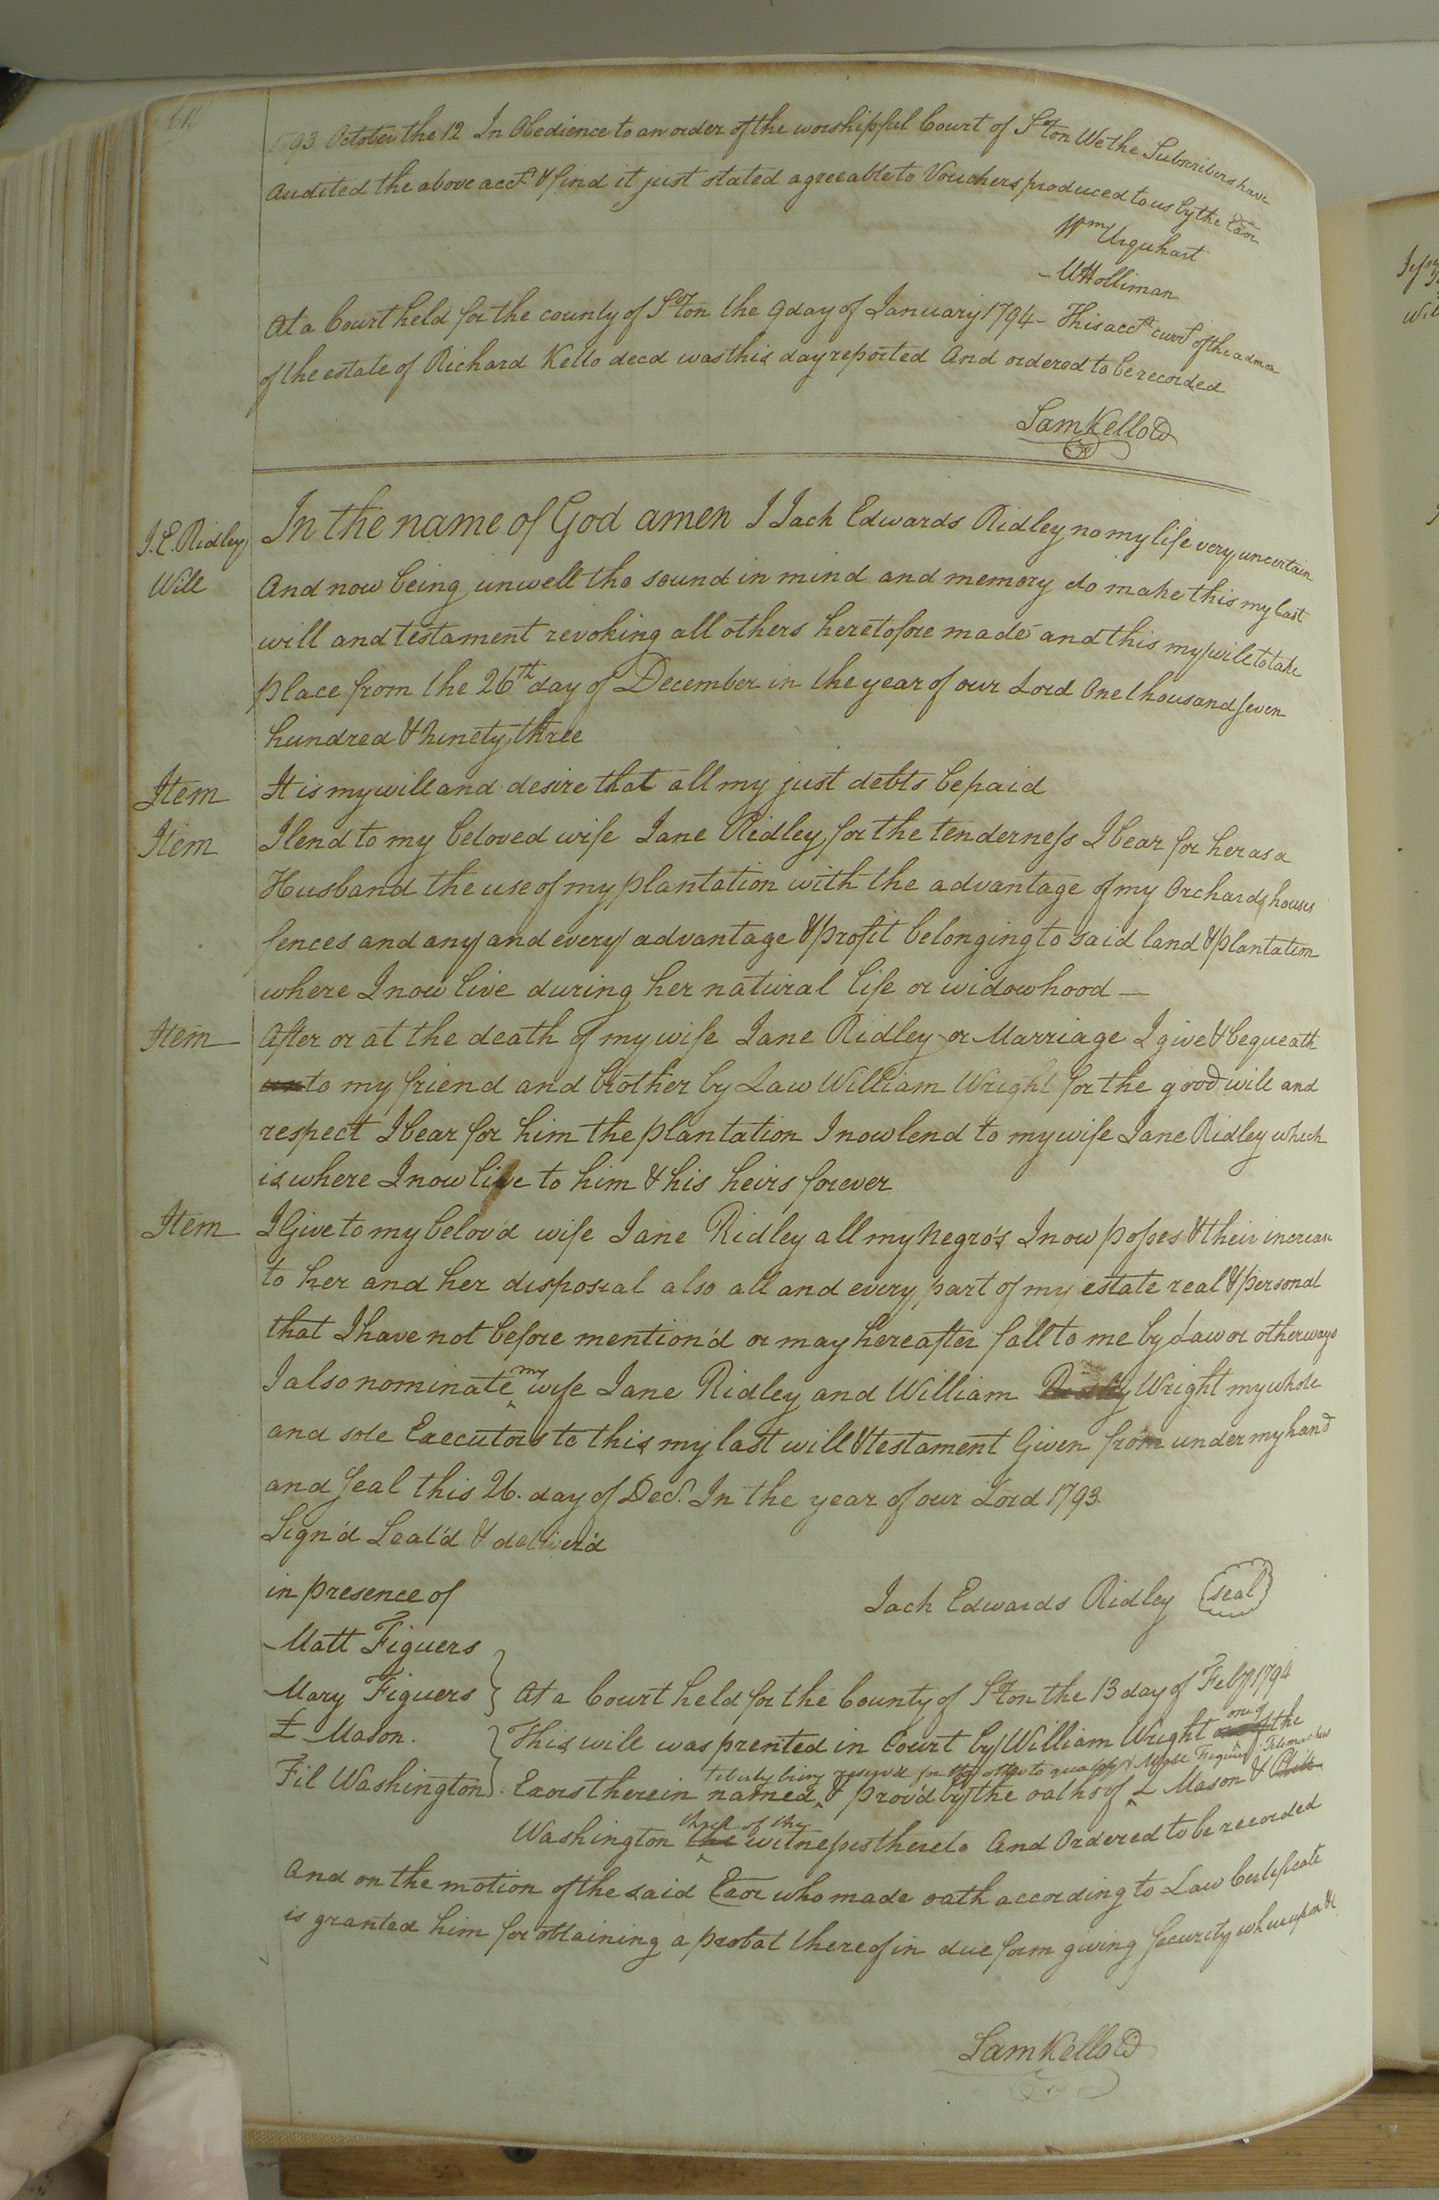 1793 October the 12 In Obedience to an order of the worshipful Court of Sºton We the Subscribers have
audited the above acct & find it just stated agreeable to Vouchers produced to us by the Exor
Wm Urquhart
M Holliman
At a Court held for the county of Sºton the 9 day of January 1794 - This acct curt of the admon
of the estate of Richard Kello decd was this day reported And ordered to be recorded
Sam Kello CC
J. E. Ridley In the name of God amen I Jack Edwards Ridley no my life very uncertain
Will And now being unwell tho sound in mind and memory do make this my last
will and testament revoking all others heretofore made and this my will to take
place from the 26th day of December in the year of our Lord One thousand seven
hundred & ninety three
Item It is my will and desire that all my just debts be paid
Item I lend to my beloved wife Jane Ridley for the tenderness I bear for her as a
Husband the use of my plantation with the advantage of my Orchards houses
fences and any and every advantage & profit belonging to said land & plantation
where I now live during her natural life or widowhood —
Item After or at the death of my wife Jane Ridley or Marriage I give & bequeath
unto my friend and brother by Law William Wright for the good will and
respect I bear for him the plantation I now lend to my wife Jane Ridley which
is where I now live to him & his heirs forever
Item I Give to my belov'd wife Jane Ridley all my Negro's I now posses & their increase
to her and her disposial also all and every part of my estate real & personal
that I have not before mention'd or may hereafter fall to me by Law or otherways
I also nominate my wife Jane Ridley and William Ridley Wright my whole
and sole Executors to this my last will & testament Given from under my hand
and seal this 26. day of Decr. In the year of our Lord 1793.
Sign'd Seal'd & deliver'd
in presence of
Jack Edwards Ridley seal
Matt Figuers
Mary Figuers At a Court held for the County of Sºton the 13 day of Feby 1794
L Mason. This will was prented in Court by William Wright one of the
liberty being reserv'd for the other to
Fil Washington Exors therein named & prov'd by the oaths of L Mason &
three of the
Washington the witnesses thereto And Ordered to be recorded
And on the motion of the said Exor who made oath according to Law Certificate
is granted him for obtaining a probat thereof in due form giving security whereupon &c
Sam Kello CC